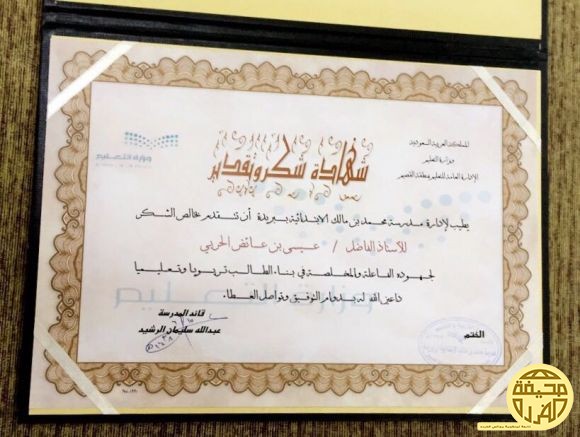 المملكة العربية السعودية
وزارة التعليم
الإدارة العامة للتعليم بمنطقة القصيم
وزارة التعليم
شهادة شكر وتقدير
يطيب لإدارة مدرسة محمد بن مالك الابتدائية ببريدة أن تتقدم بخالص الشكر
للأستاذ الفاضل / عيسى بن عائض الحربي
لجهوده الفاعلة والمخلصة في بناء الطالب تربويا وتعليميا
داعين الله له بدوام التوفيق وتواصل العطاء.
وزارة التعليم
قائد المدرسة
عبدالله سليمان الرشيد
الختم
صحيفة